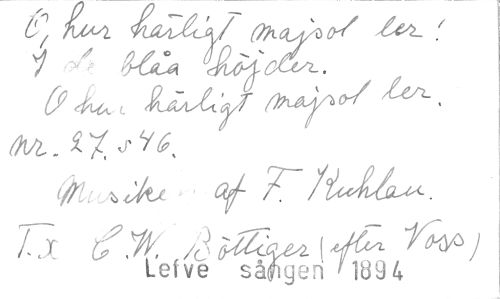 O, hur härligt majsol ler!
I de blåa höjder.
O hur härligt majsol ler.
nr. 27. s 46.
Musiken af F. Kuhlau.
T.x C.W. Böttiger (efter Voss)
Lefve sången 1894